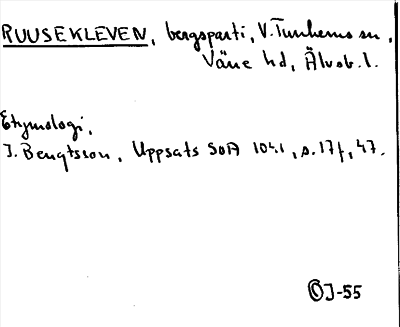 RUUSEKLEVEN, bergsparti, V. Tunhems sn,
Väne hd, Älvsb. l.
Etymologi,
J. Bengtsson, Uppsats SOA 1041, s. 17f, 47.
OJ-55